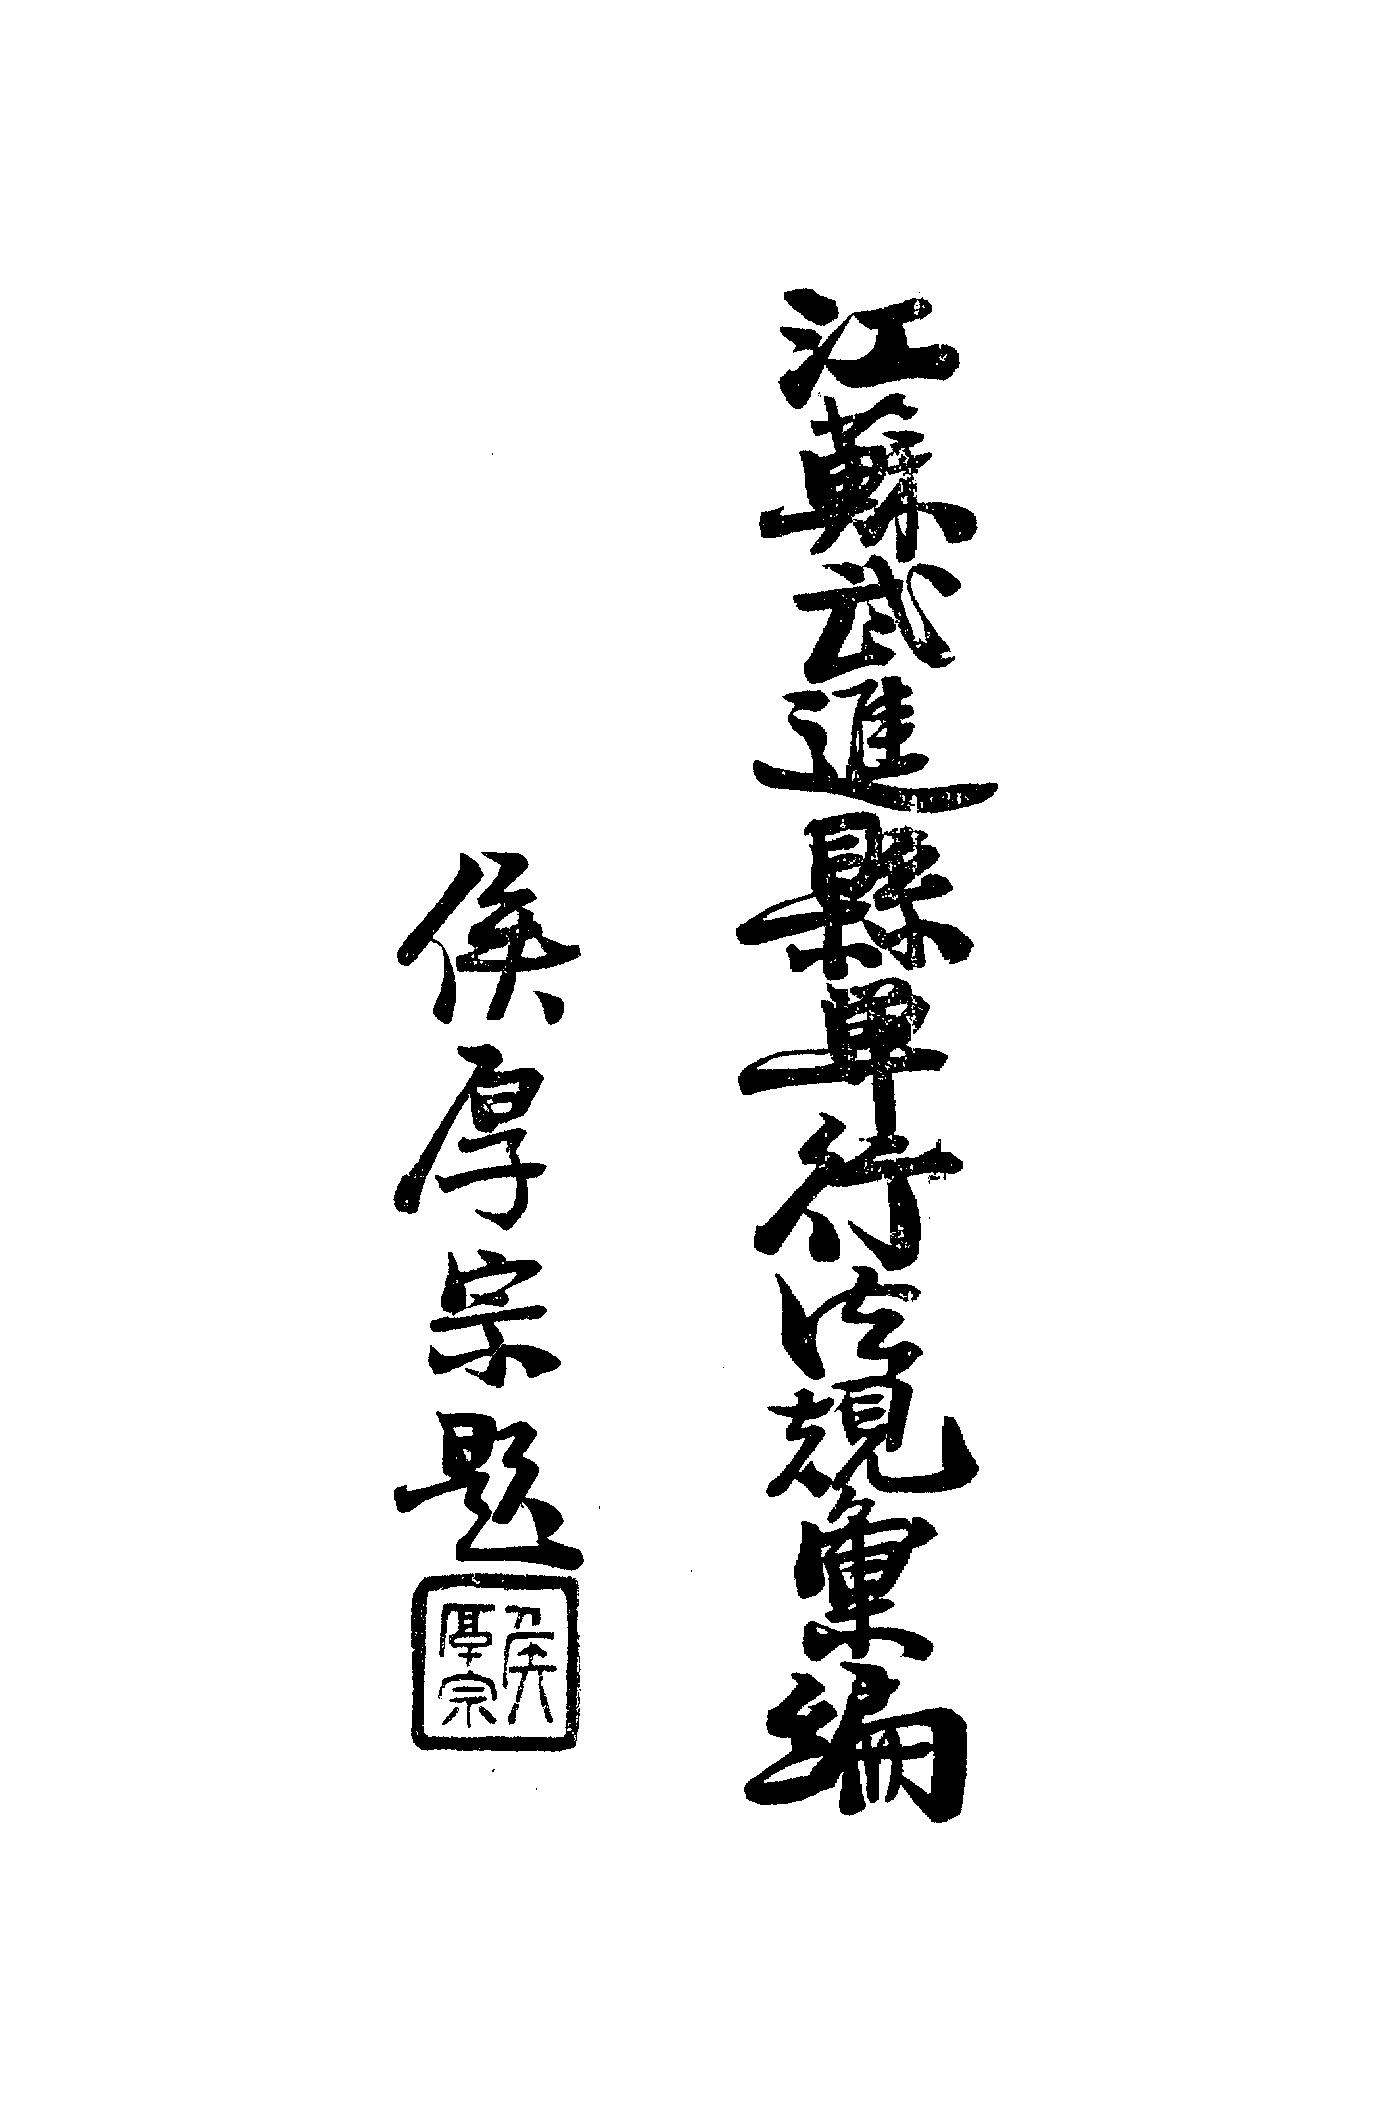 江蘇武進縣單行法規彙編
侯厚宗題
侯
厚宗